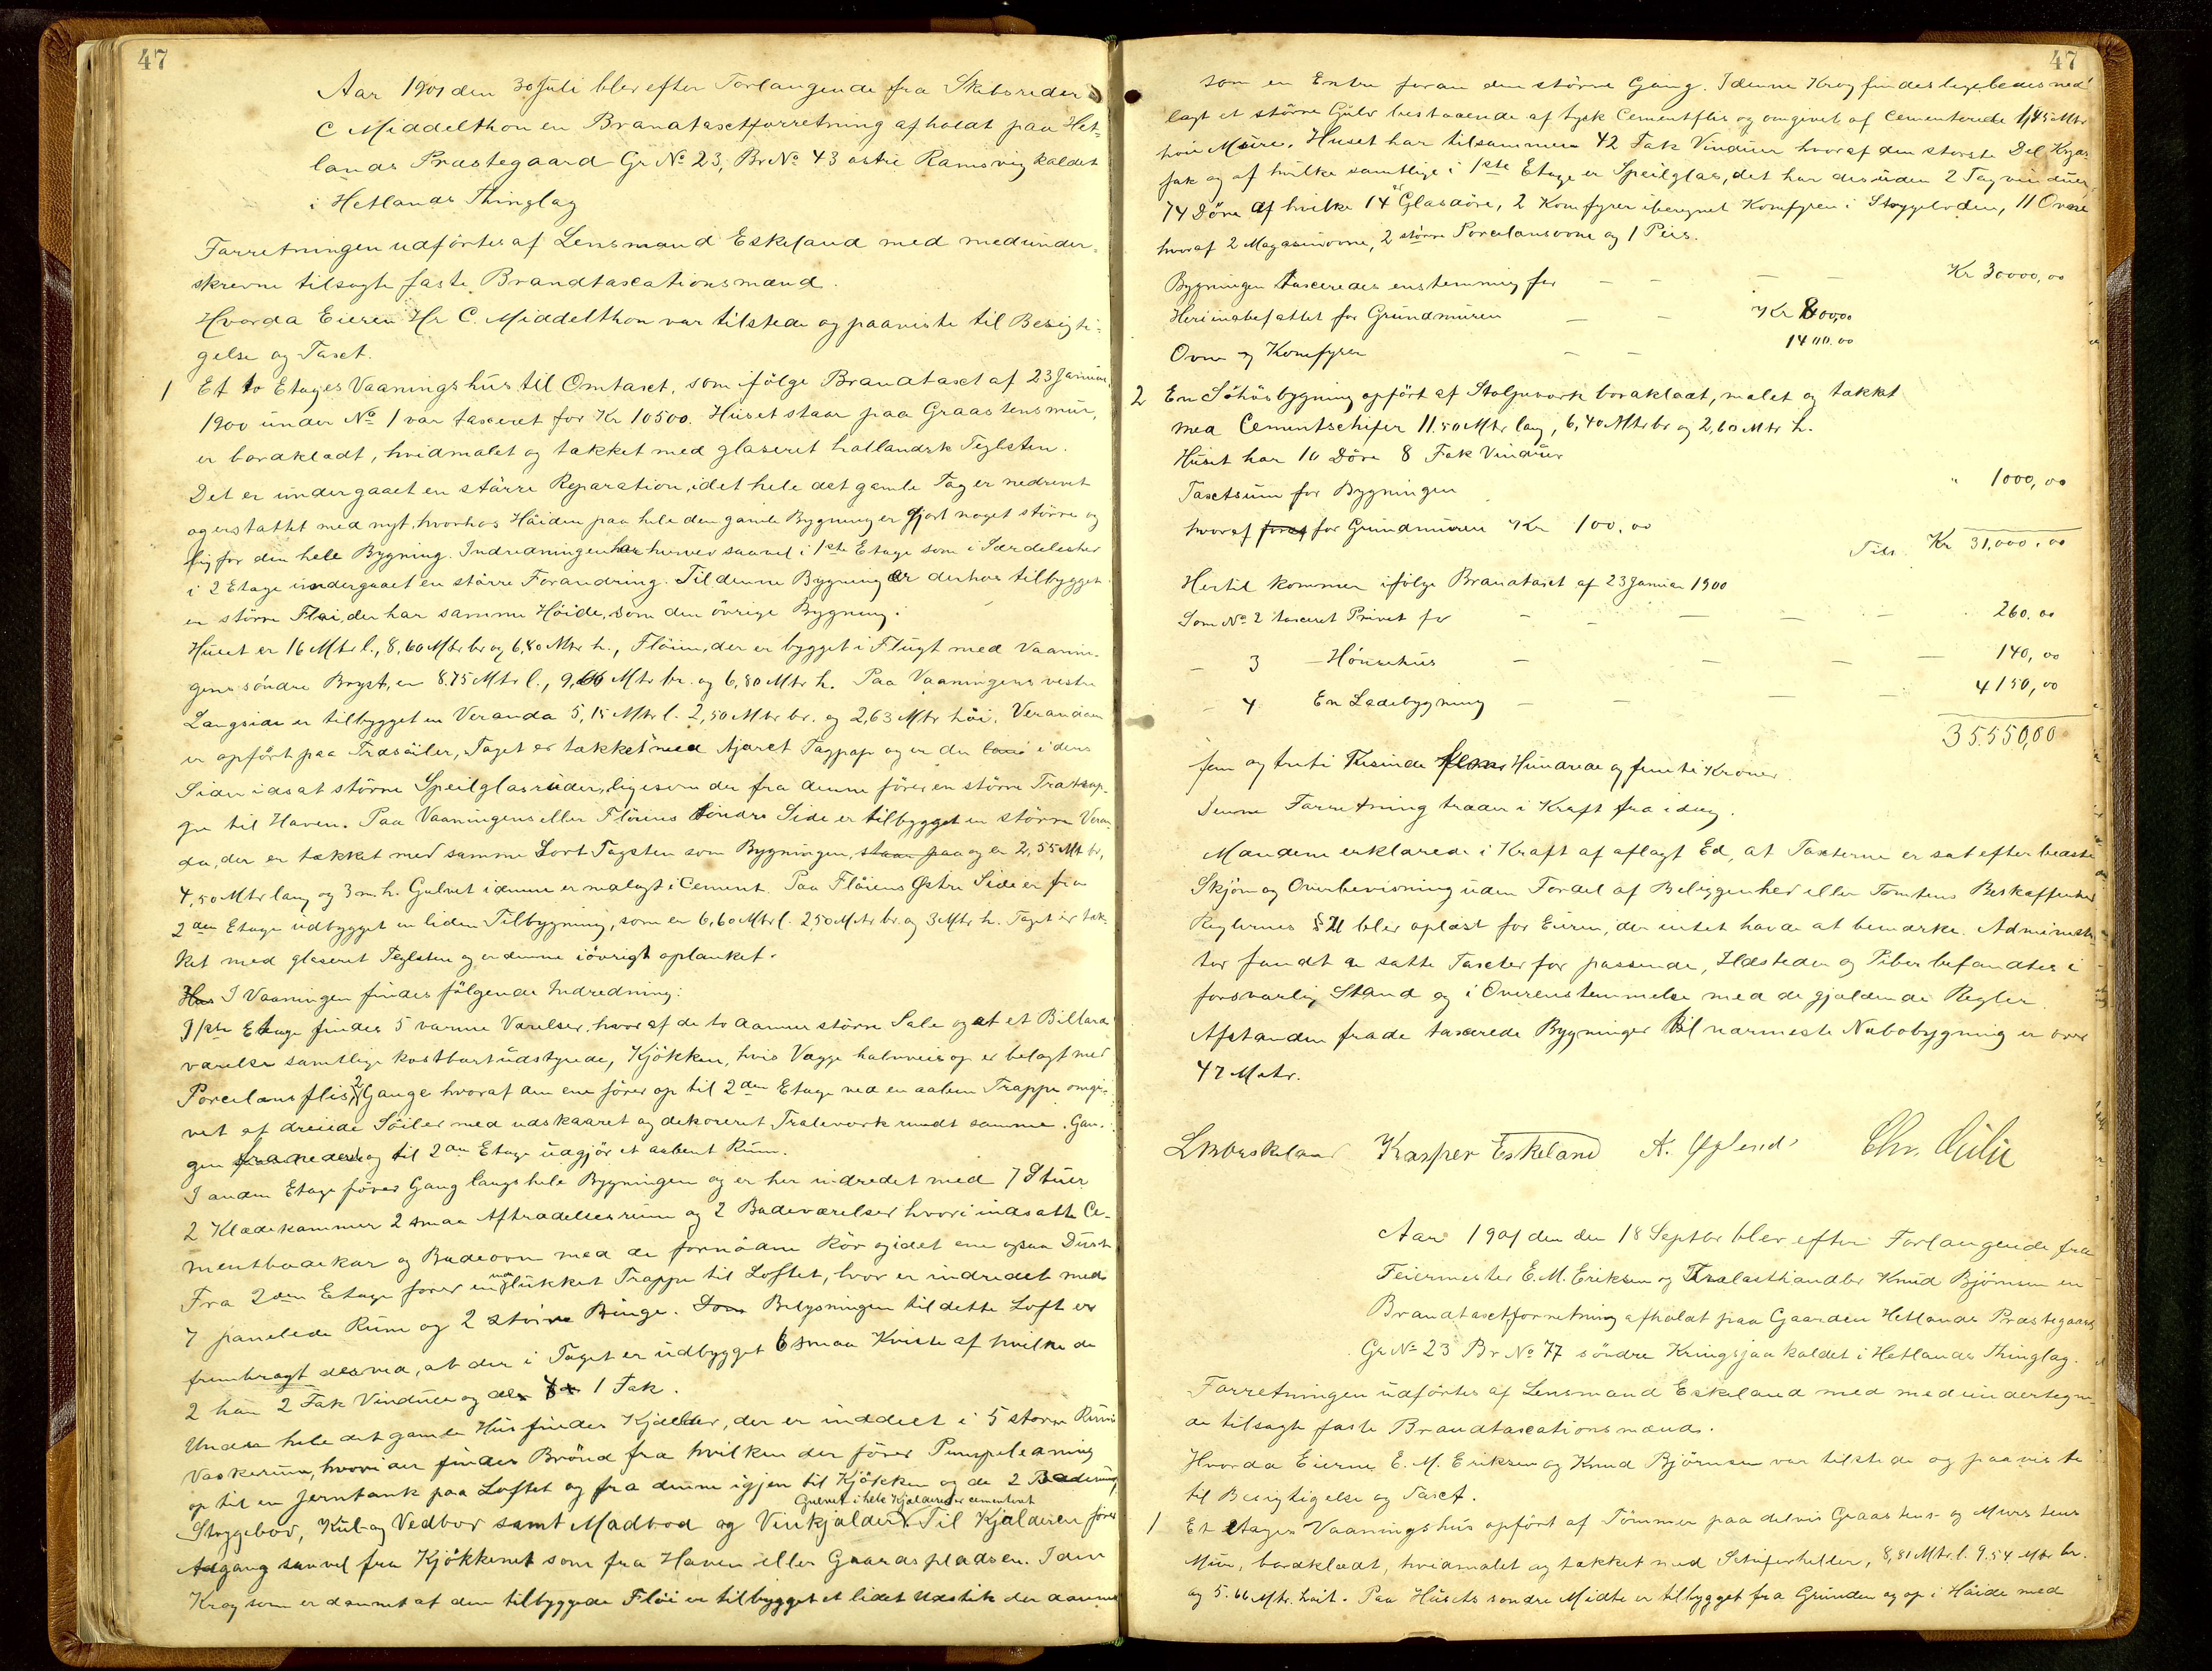 47
Aar 1901 den 30 Juli blev efter Forlangende fra Skibsreder
C Middelthon en Brandtaxtforretning afholdt paa Het-
lands Præstegaard Gr № 23, Br № 43 østre Ramsvig kaldet
i Hetlands Thinglag
Forretningen udførtes af Lensmand Eskeland med medunder-
skrevne tilsagte faste Brandtaxationsmænd.
Hvorda Eieren Hr C. Middelthon var tilstede og paaviste til Besigti-
gelse og Taxt.
1 Et to Etages Vaaningshus til Omtaxt, som ifølge Brandtaxt af 23 Januar
1900 under № 1 var taxeret for Kr 10500. Huset staar paa Graastensmur,
er bordklædt, hvidmalet og takket med glaseret hollandsk Teglsten.
Det er undergaaet en større Reparation, idet hele det gamle Tag er nedrevet
og erstattet med nyt, hvorhos Høiden paa hele den gamle Bygning er gjort noget større og
lig for den hele Bygning. Indredningen har herved saavel i 1ste Etage som i Særdeleshed
i 2 Etage undergaaet en større Forandring. Til denne Bygning er derhos tilbygget
en større Fløi, der har samme Høide, som den øvrige Bygning.
Huset er 16 Mtr l., 8,60 Mtr br og 6,80 Mtr h., Fløien, der er bygget i Flugt med Vaanin-
gens søndre Bryst, er 8.75 Mtr l., 9,60 Mtr br. og 6,80 Mtr h. Paa Vaaningens vestre
Langside er tilbygget en Veranda 5,15 Mtr l. 2,50 Mtr br. og 2,63 Mtr høi. Verandaen
er opført paa Træsøiler, Taget er takket med tjæret Tagpap og er der i dens
Sider idsat større Speilglasruder, ligesom der fra denne fører en større Trætrap-
pe til Haven. Paa Vaaningens eller Fløiens søndre Side er tilbygget en større Veran-
da, der er takket med samme Sort Tagsten som Bygningen, staar paa og er 2,55 Mt br,
4,50 Mtr lang og 3 m. h. Gulvet i denne er malagt i Cement. Paa Fløiens Østre Side er fra
2den Etage udbygget en liden Tilbygning, som er 6,60 Mtr l. 2,50 Mtr br. og 3 Mtr h. Taget er tak-
ket med glaseret Teglsten og er denne iøvrigt oplanket.
Hus I Vaaningen findes følgende Indredning:
I 1ste Etage findes 5 varme Værelser, hvoraf de to danner større Sale og et et Billard
værelse samtlige kostbart udstyrede, Kjøkken, hvis Vægge halvveis op er belagt med
Porcelænsflis, 2 Gange hvoraf den ene fører op til 2den Etage ved en aaben Trappe omgi-
vet af dreiede Søiler med udskaaret og dekoreret Traleværk rundt samme. Gan-
gen fra neden og til 2den Etage udgjør et aabent Rum.
I anden Etage fører Gang langs hele Bygningen og er her indredet med 7 Stuer
2 Klædekammer 2 smaa Aftrædelsesrum og 2 Badeværelser hvori indsatte Ce-
mentbadekar og Badeovn med de fornødne Rør og i det ene ogsaa Dusch
Fra 2den Etage fører en lukket Trappe til Loftet, hvor er indredet med
7 panelede Rum og 2 større Binge. Som Belysningen til dette Loft er
frembragt derved, at der i Taget er udbygget 6 smaa Kviste af hvilke de
2 har 2 Fak Vinduer og de 4 1 Fak.
Under hele det gamle Hus findes Kjælder, der er inddelt i 5 større Rum
Vaskerum, hvori der findes Brønd fra hvilken der fører Pumpeledning
op til en Jerntank paa Loftet og fra denne igjen til Kjøkken og de 2 Baderum,
Gulvet i hele Kjælderen er cementeret
Stryggebod, Kul og Vedbod samt Madbod og Vinkjælder. Til Kjælderen fører
Adgang saavel fra Kjøkkenet som fra Haven eller Gaardspladsen. I den
Krog som er dannet af den tilbyggede Fløi er tilbygget et lidet Udstik der danner
47
som en Entre foran den større Gang. I denne Krog findes ligeledes ned-
lagt et større Gulv bestaaende af tysk Cementflis og omgivet af Cementerede 1,45 Mtr
høie Mure. Huset har tilsammen 42 Fak Vinduer hvoraf den største Del Kryds
fak og af hvilke samtlige i 1ste Etage er Speilglas, det har desuden 2 Tagvinduer,
74 Døre af hvilke 14 er Glasdøre, 2 Komfyrer iberegnet Komfyren i Stryggeboden, 11 Ovne
hvoraf 2 Magasinovne, 2 større Porcelænsovne og 1 Peis.
Bygningen taxeredes enstemmig for — — — — Kr 30000,00
Heri indbefattet for Grundmuren — — Kr 800,00
Ovne og Komfyrer — — 1400.00
2 En Søhusbygning opført af Stolpeverk bordklædt, malet og takket
med Cementschifer 11.50 Mtr lang, 6,40 Mtr br og 2,60 Mtr h.
Huset har 10 Døre 8 Fak Vinduer
Taxtsum for Bygningen " 1000,00
hvoraf for Grundmuren Kr 100,00
Tils. Kr 31,000,00
Hertil kommer ifølge Brandtaxt af 23 Januar 1900
Som № 2 taxeret Privet for — — — — — 260,00
— 3 — Hønsehus — — — — 140,00
— 4 En Ladebygning — — — — 4150,00
35.550,00
fem og treti Tusinde fem Hundrede og femti Kroner.
Denne Forretning træder i Kraft fra idag.
Mændene erklærede i Kraft af aflagt Ed, at Taxterne er sat efter bedste
Skjøn og Overbevisning uden Fordel af Beliggenhed eller Tomtens Beskaffenhed
Reglernes § 21 blev oplæst for Eieren, der intet havde at bemærke. Administra-
tor fandt de satte Taxter for passende, Ildsteder og Piber befandtes i
forsvarlig Stand og i Overensstemmelse med de gjældende Regler.
Afstanden fra de taxerede Bygninger til nærmeste Nabobygning er over
47 Metr.
Kasper Eskeland
Aar 1901 den den 18 Septbr blev efter Forlangende fra
Feiermester E. M. Eriksen og Trælasthandler Knud Bjørnsen en
Brandtaxtforretning afholdt paa Gaarden Hetlands Præstegaard
Gr № 23 Br № 77 søndre Kringsjaa kaldet i Hetlands Thinglag.
Forretningen udførtes af Lensmand Eskeland med medundertegne-
de tilsagte faste Brandtaxationsmænd.
Hvorda Eierne E. M. Eriksen og Knud Bjørnsen var tilstede og paaviste
til Besigtigelse og Taxt.
1 Et Etages Vaaningshus opført af Tømmer paa delvis Graastens- og Murstens
Mur, bordklædt, hvidmalet og takket med Schiferheller, 8,81 Mtr. l. 9.54 Mtr br.
og 5.66 Mtr. høit. Paa Husets søndre Midte er tilbygget fra Grunden og op i Høide med